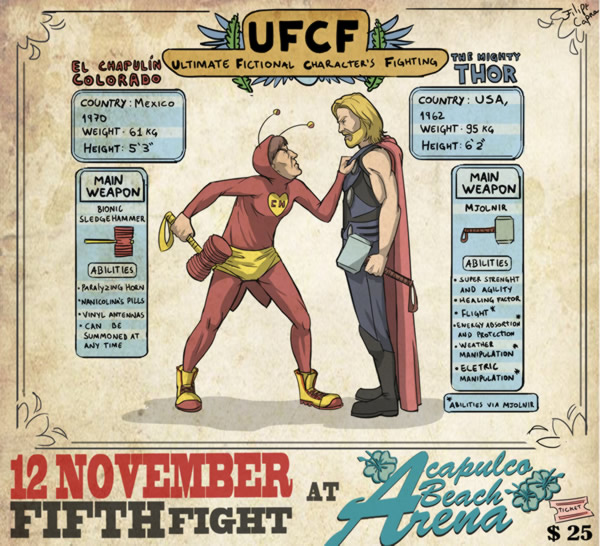 Filipe
Capra
UFCF
ULTIMATE FICTIONAL CHARACTER'S FIGHTING
EL CHAPULÍN
COLORADO
COUNTRY: MEXICO
1970
WEIGHT · 61 KG
HEIGHT: 5'3"
MAIN
WEAPON
BIONIC
SLEDGEHAMMER
ABILITIES
• PARALYZING HORN
• NANICOLINA'S PILLS
• VINYL ANTENNAS
• CAN BE
SUMMONED AT
ANY TIME
CH
THE MIGHTY
THOR
COUNTRY: USA,
1962
WEIGHT · 95 KG
HEIGHT: 6'2"
MAIN
WEAPON
MJOLNIR
ABILITIES
• SUPER STRENGHT
AND AGILITY
• HEALING FACTOR
• FLIGHT*
• ENERGY ABSORTION
AND PROTECTION*
• WEATHER
MANIPULATION*
• ELETRIC
MANIPULATION*
*ABILITIES VIA MJOLNIR
12 NOVEMBER
FIFTH FIGHT
AT
Acapulco
Beach
Arena
TICKET
$ 25